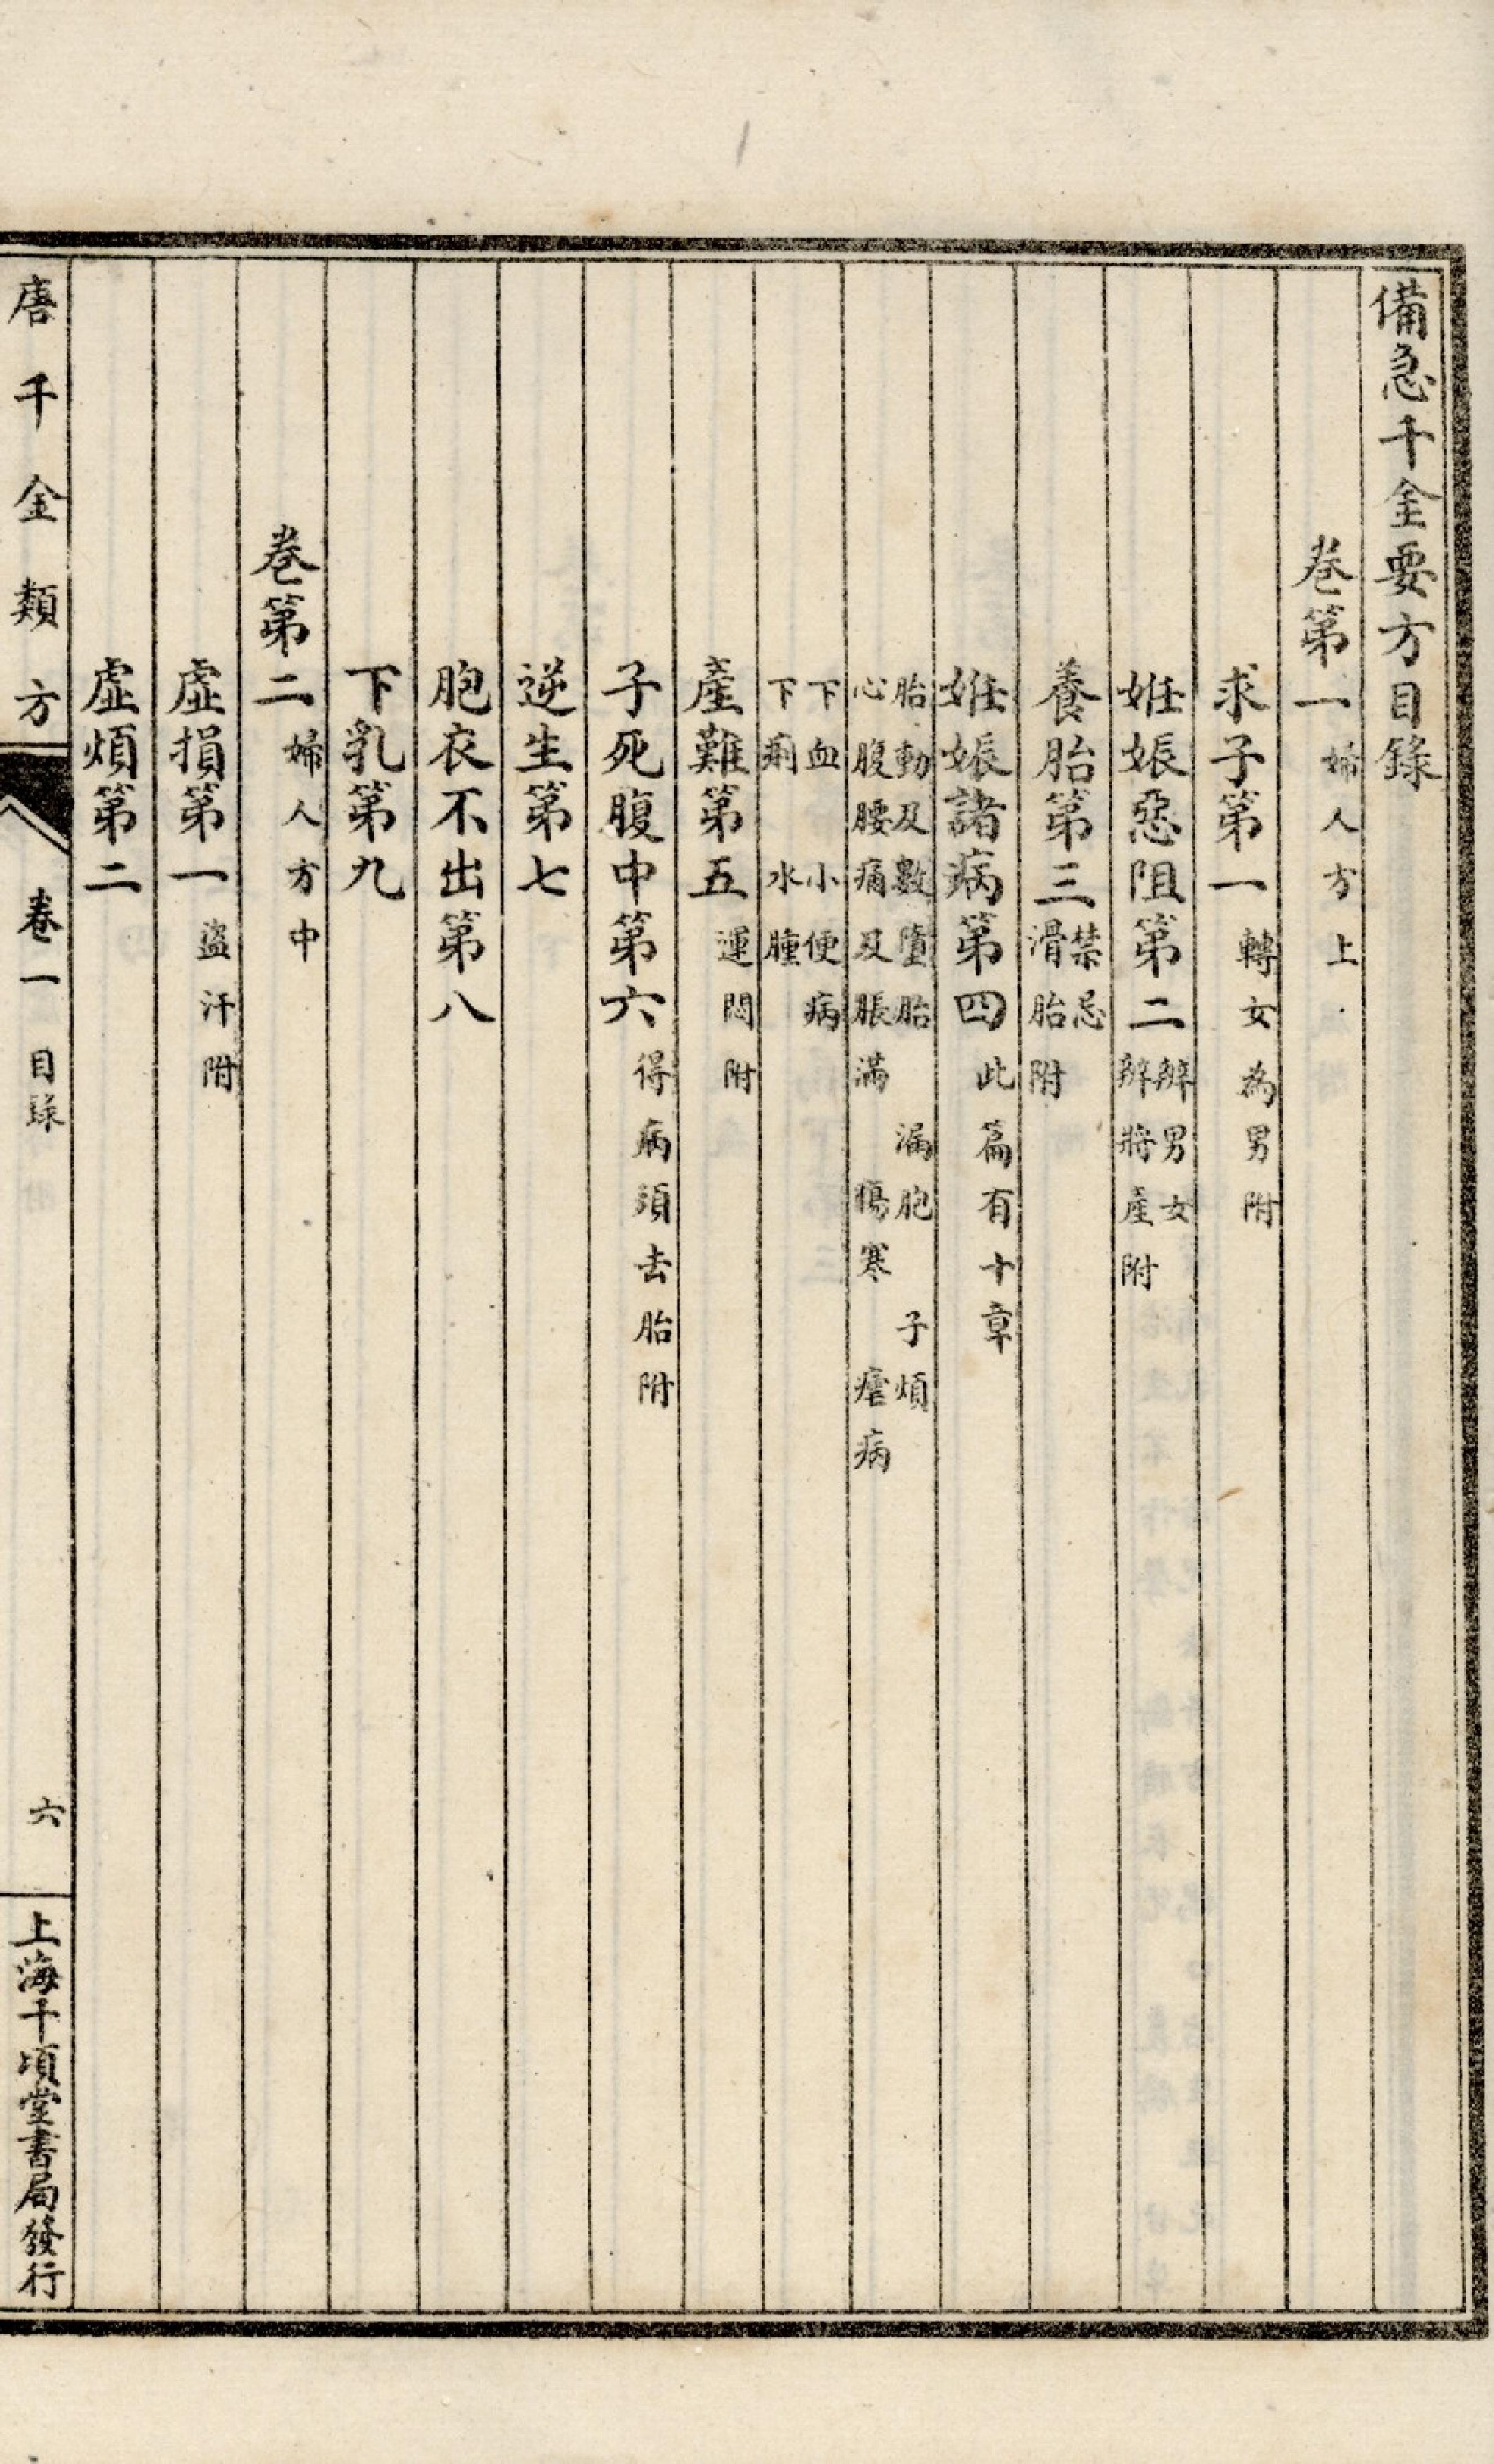 備急千金要方目錄
卷第一 婦人方上
求子第一 轉女為男附
姙娠惡阻第二 辨男女 辨將產附
養胎第三 禁忌 滑胎附
姙娠諸病第四 此篇有十章
胎動及數墮胎 漏胞 子煩
心腹腰痛及脹滿 傷寒 瘧病
下血 小便病
下痢 水腫
產難第五 運悶附
子死腹中第六 得病須去胎附
逆生第七
胞衣不出第八
下乳第九
卷第二 婦人方中
虛損第一 盜汗附
虛煩第二
唐千金類方 卷一 目錄 六 上海千頃堂書局發行